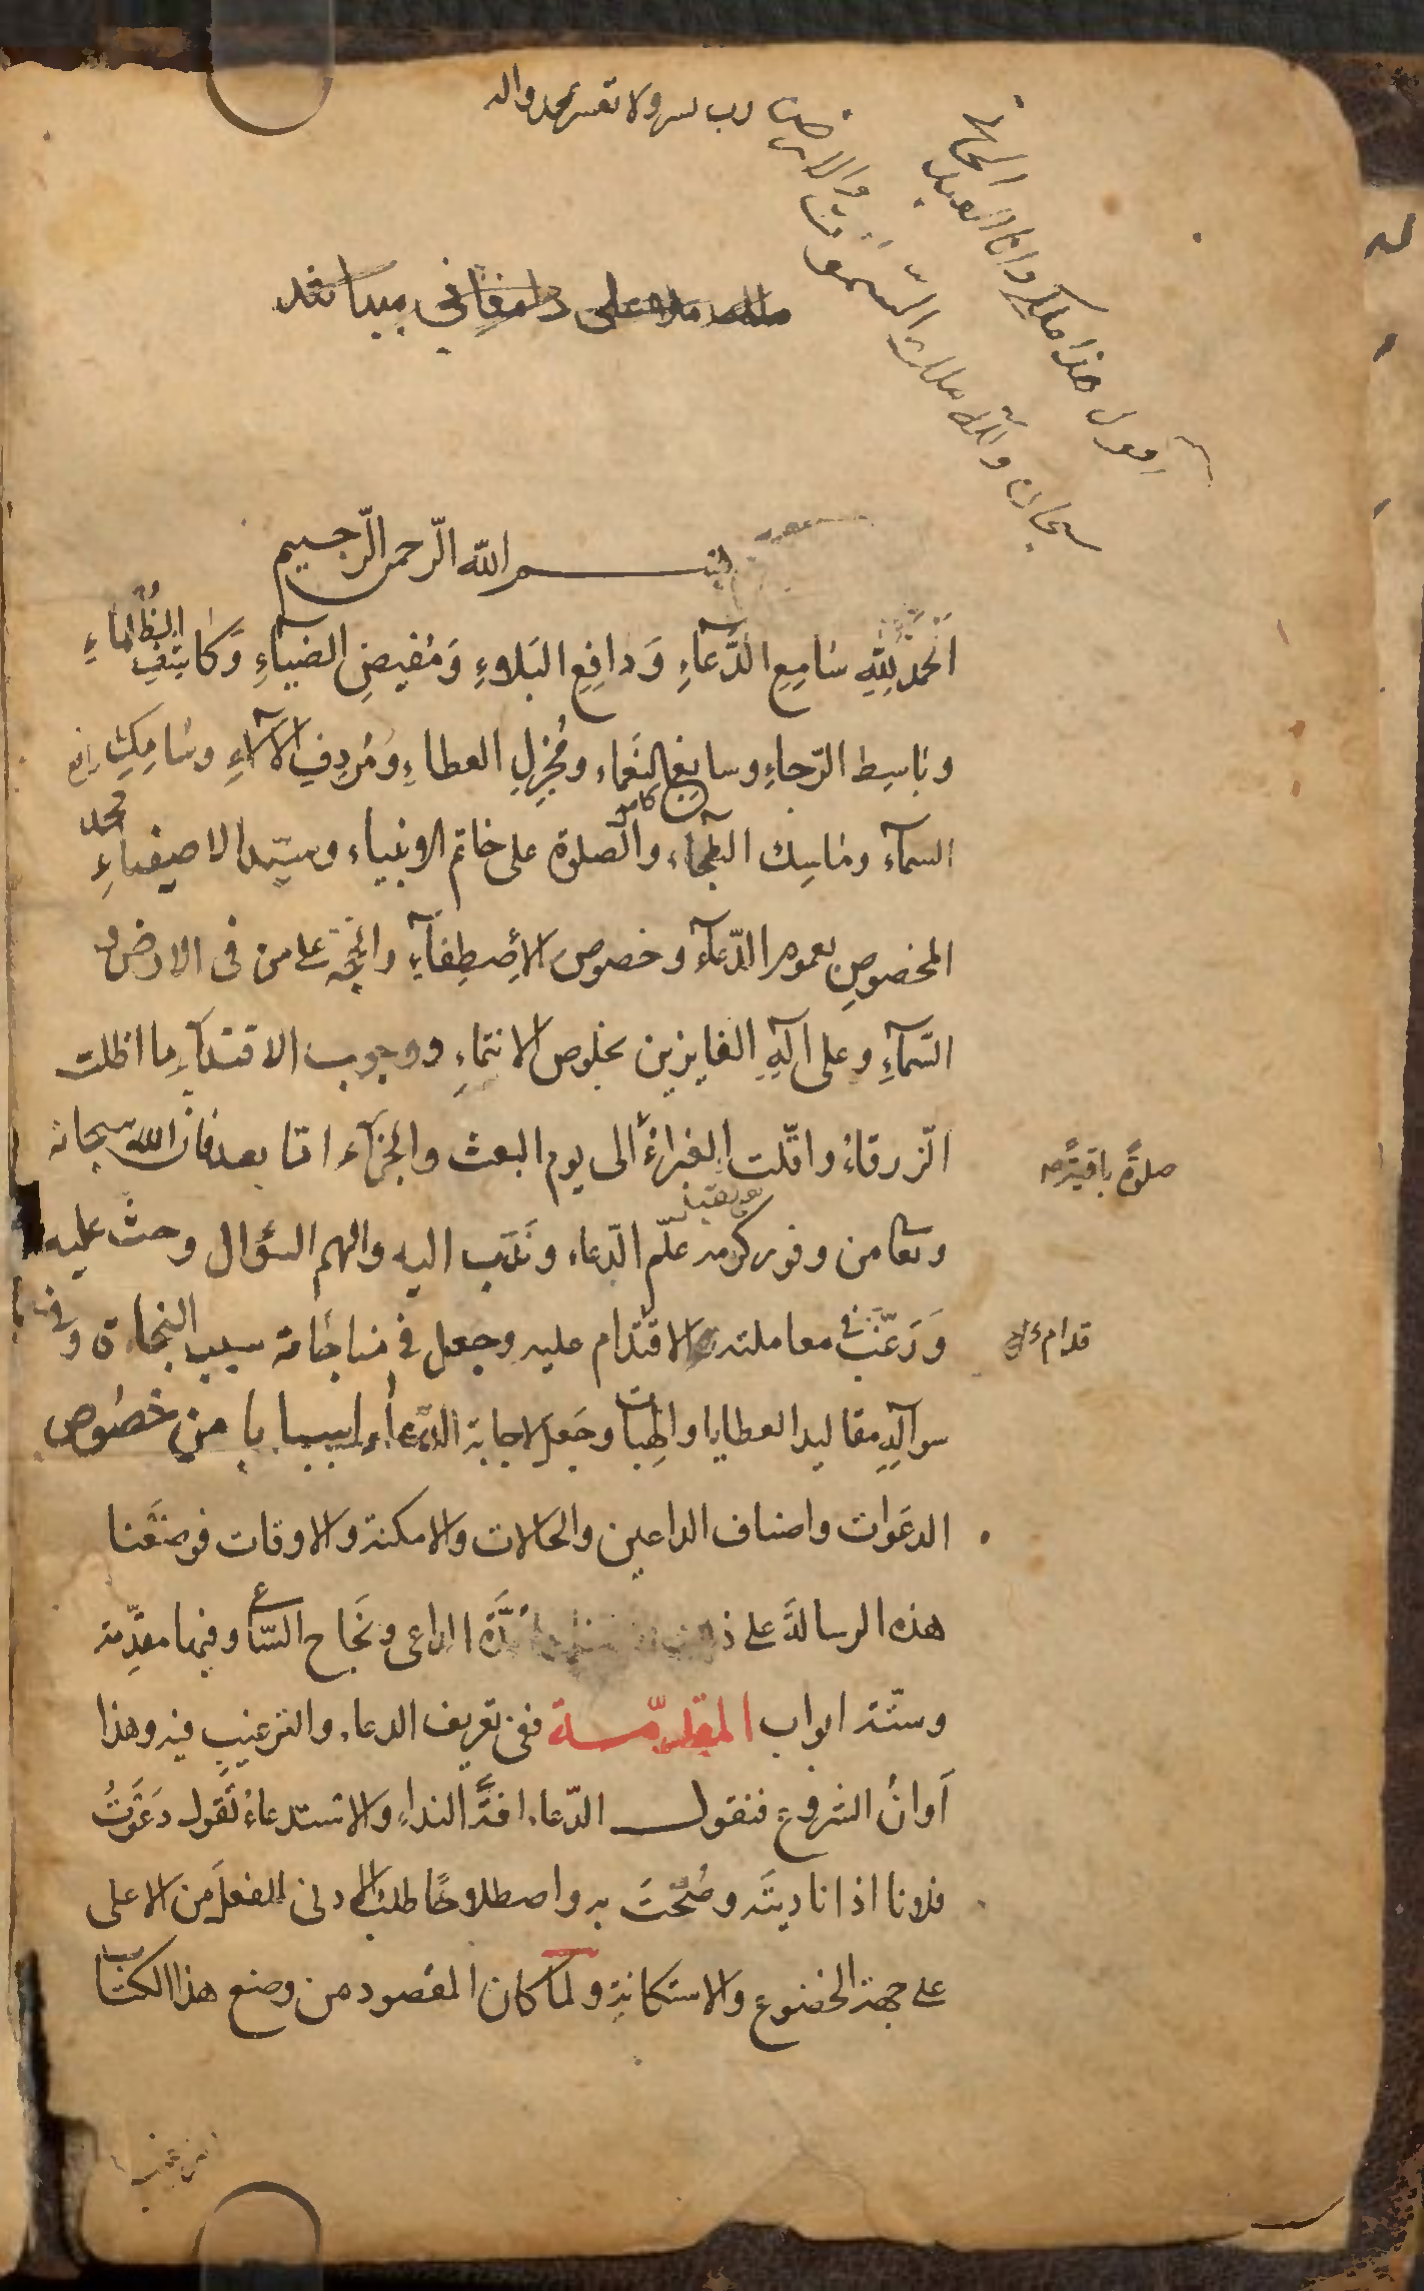 رب يسر ولا تعسر بمحمد واله
اقول هذا ملكى وانا العبد
سبحان والله ملك السموت والارض
ملا على دامغانى ميباشد
بسم الله الرحمن الرحيم
اَلحَمْدُ لِلّٰهِ سَامِعِ الدُّعَآءِ وَدافِعِ البَلاءِ وَمُفيضِ الضيآءِ وَكاشِفِ الظُّلماءِ
وبَاسِط الرّجاءِ وسابغ النّعماء ومُجزِلِ العطاءِ ومُردِفِ الآلآءِ وسَامِكِ
السمآء ومَاسِك البطحآء والصّلوة على خاتم الانبياء وسيّد الاصفياءِ محمد
المخصوصِ بعموم الدّعآء وخصوص الاِصطِفآءِ والحجّة على من فى الارض و
السّمآءِ وعلى آلِهِ الفايزين بخلوص الانتماءِ ووجوب الاقتدآءِ ما اظلت
الزّرقاءُ واقلّت الغبراءُ الى يوم البعث والجزآء امّا بعد فان الله سبحانه
صلوةً باقيةً
وتعا من وفور كرمه علّم الدّعاء ونَدَب اليه والهم السؤال وحثّ عليه
وَرَغَّبَ فى معاملته والاقدام عليه وجعل فى مناجاته سبب النجاة وفى
سوآلِهِ مقاليد العطايا والهِبات وجَعل لاجابة الدّعاء اسبابا من خصُوص
الدعَوات واصناف الداعين والحالات والامكنة والاوقات فوضَعْنا
هذه الرسالةَ على ذلك الداعى ونجَاح السّاعى وفيها مقدّمة
وستّة ابواب المقدّمـــة ففى تعريف الدعاء والترغيبِ فيه وهذا
اَوانُ الشروع فنقول الدّعاء لغةً النداءُ والاستدعاءُ تَقول دَعَوْتُ
فلانا اذا ناديتَه وصُحْتَ به واصطلاحًا طلب الادنى للفعل من الاعلى
على جهة الخضوع والاستكانةِ ولمّا كان المقصود من وضع هذا الكتاب